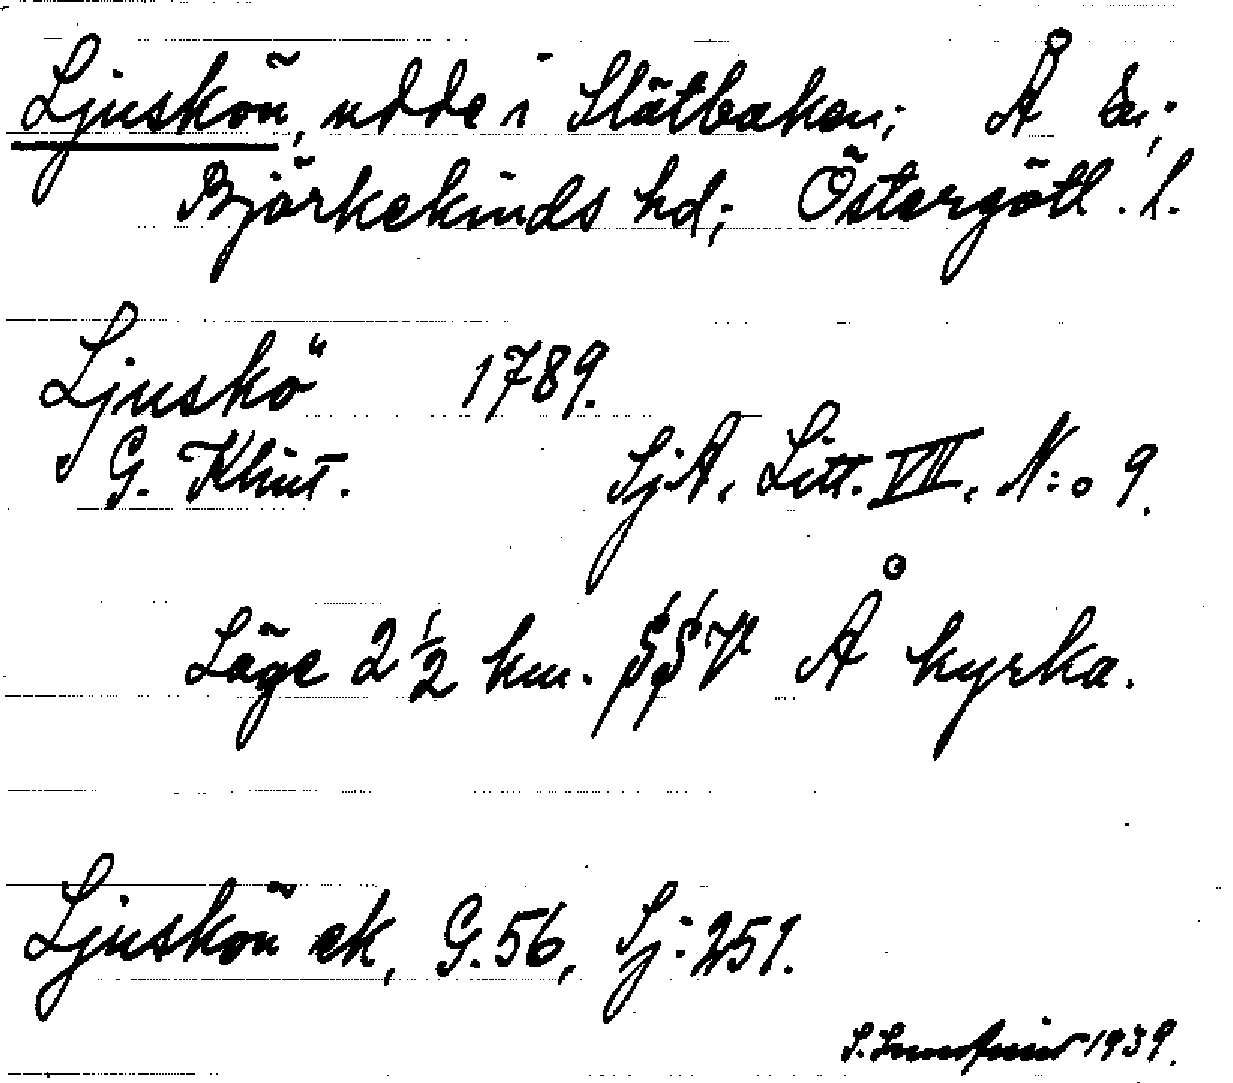 Ljuskön, udde i Slätbaken; Å sn;
Björkekinds hd; Östergötl. l.
Ljuskö 1789.
G. Klint. SjA, Litt. VII, N:o 9.
Läge 2 1/2 km. SSV Å kyrka.
Ljuskön ek, G.56, Sj:251.
1939.